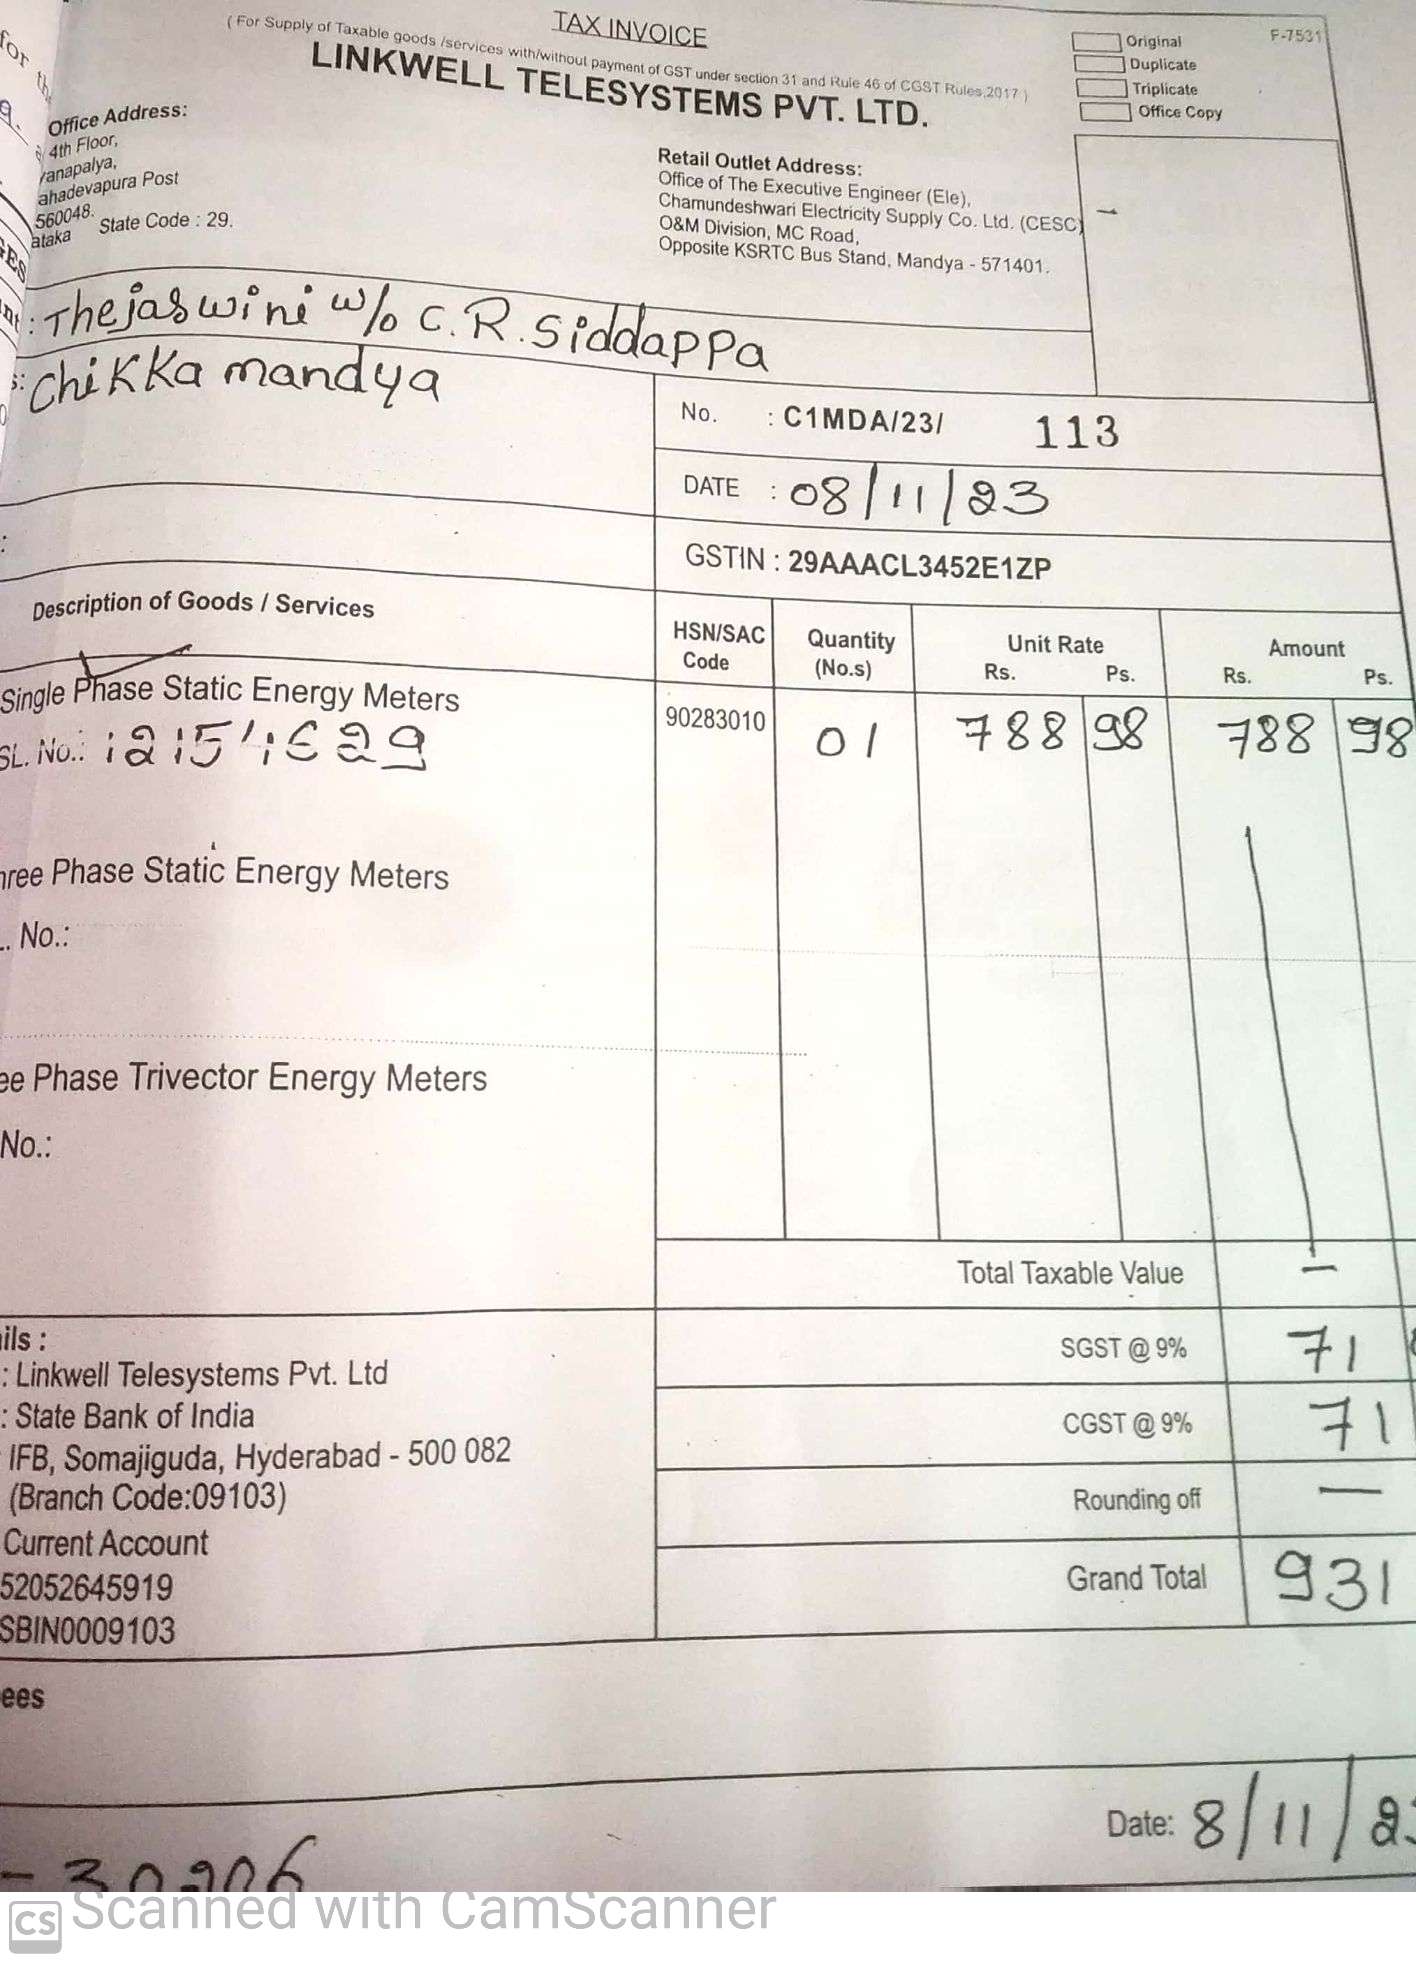 TAX INVOICE
F-7531
( For Supply of Taxable goods /services with/without payment of GST under section 31 and Rule 46 of CGST Rules,2017 )
LINKWELL TELESYSTEMS PVT. LTD.
Original
Duplicate
Triplicate
Office Copy
for
Office Address:
4th Floor,
ahadevapura Post
560048.
ataka State Code : 29.
Retail Outlet Address:
Office of The Executive Engineer (Ele),
Chamundeshwari Electricity Supply Co. Ltd. (CESC)
O&M Division, MC Road,
Opposite KSRTC Bus Stand, Mandya - 571401.
: Thejaswini w/o C.R.Siddappa
: Chikka mandya
No. : C1MDA/23/ 113
DATE : 08/11/23
GSTIN : 29AAACL3452E1ZP
Description of Goods / Services
HSN/SAC Code
Quantity (No.s)
Unit Rate Rs. Ps.
Amount Rs. Ps.
Single Phase Static Energy Meters
90283010 01 788 98 788 98
SL. No.:
ree Phase Static Energy Meters
. No.:
ee Phase Trivector Energy Meters
No.:
Total Taxable Value -
SGST @ 9% 71
CGST @ 9% 71
Rounding off -
Grand Total 931
ils :
: Linkwell Telesystems Pvt. Ltd
: State Bank of India
IFB, Somajiguda, Hyderabad - 500 082
(Branch Code:09103)
Current Account
52052645919
SBIN0009103
ees
Date: 8/11/2
CS Scanned with CamScanner